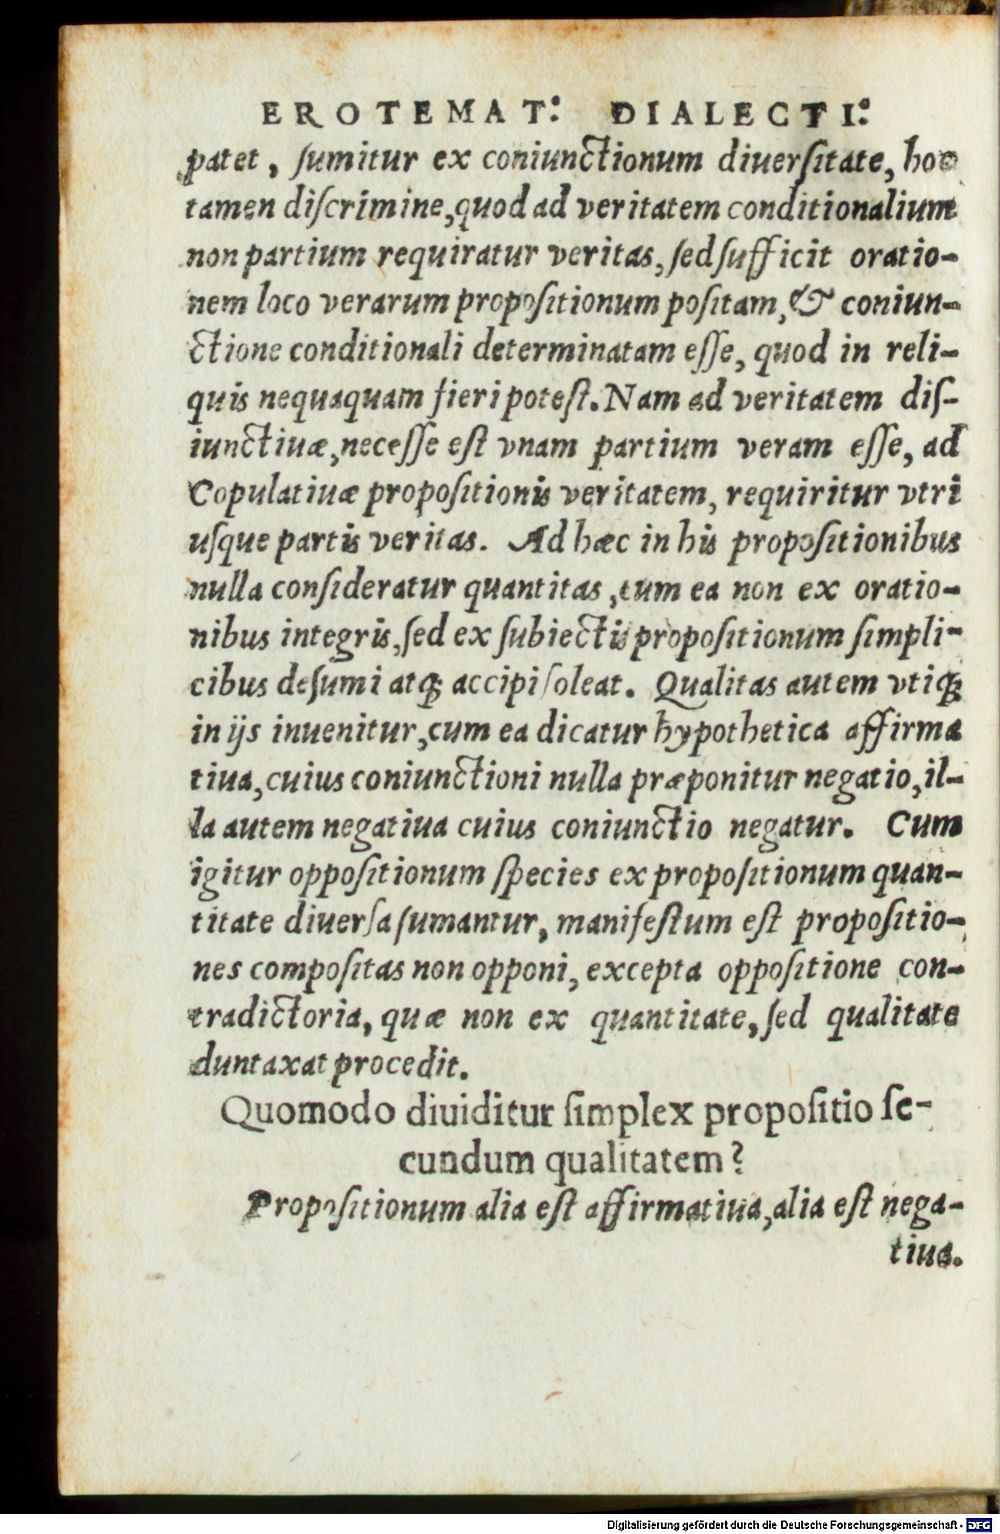 EROTEMAT: DIALECTI:
patet, ſumitur ex coniunctionum diuerſitate, hoc
tamen diſcrimine, quod ad veritatem conditionalium
non partium requiratur veritas, ſed ſufficit oratio-
nem loco verarum propoſitionum poſitam, & coniun-
ctione conditionali determinatam eſſe, quod in reli-
quis nequaquam fieri poteſt. Nam ad veritatem diſ-
iunctiuæ, neceſſe eſt vnam partium veram eſſe, ad
Copulatiuæ propoſitionis veritatem, requiritur vtri
uſque partis veritas. Ad hæc in his propoſitionibus
nulla conſideratur quantitas, cum ea non ex oratio-
nibus integris, ſed ex ſubiectis propoſitionum ſimpli-
cibus deſumi atq; accipi ſoleat. Qualitas autem vtiq;
in ijs inuenitur, cum ea dicatur hypothetica affirma
tiua, cuius coniunctioni nulla præponitur negatio, il-
la autem negatiua cuius coniunctio negatur. Cum
igitur oppoſitionum ſpecies ex propoſitionum quan-
titate diuerſa ſumantur, manifeſtum eſt propoſitio-
nes compoſitas non opponi, excepta oppoſitione con-
tradictoria, quæ non ex quantitate, ſed qualitate
duntaxat procedit.
Quomodo diuiditur ſimplex propoſitio ſe-
cundum qualitatem?
Propoſitionum alia eſt affirmatiua, alia eſt nega-
tiua.
Digitalisierung gefördert durch die Deutsche Forschungsgemeinschaft - DFG